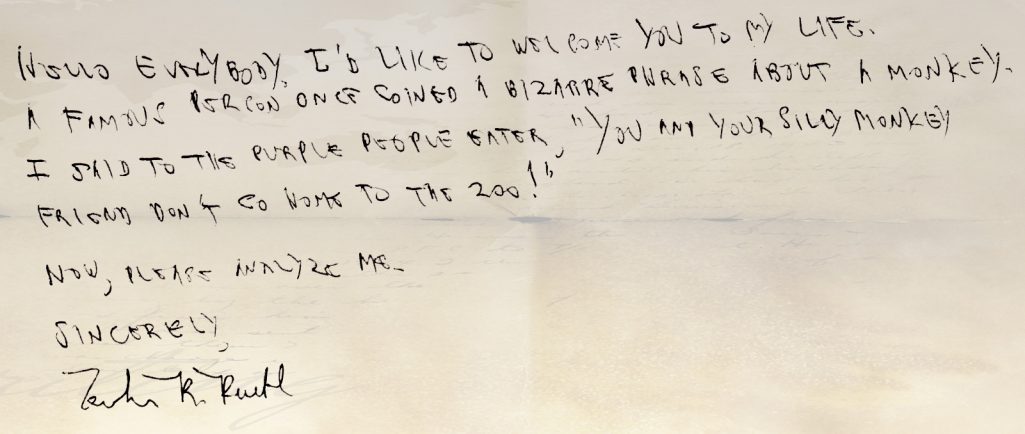 HELLO EVERYBODY, I'D LIKE TO WELCOME YOU TO MY LIFE.
A FAMOUS PERSON ONCE COINED A BIZARRE PHRASE ABOUT A MONKEY.
I SAID TO THE PURPLE PEOPLE EATER, "YOU AND YOUR SILLY MONKEY
FRIEND DON'T GO HOME TO THE ZOO!"
NOW, PLEASE ANALYZE ME.
SINCERELY,
R.